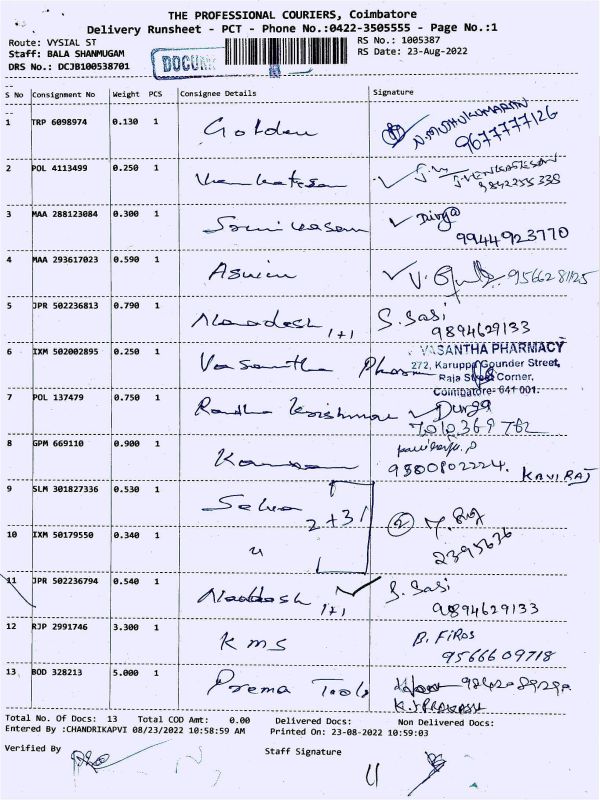 THE PROFESSIONAL COURIERS, Coimbatore
Delivery Runsheet - PCT - Phone No.:0422-3505555 - Page No.:1
Route: VYSIAL ST RS No.: 1005387
Staff: BALA SHANMUGAM RS Date: 23-Aug-2022
DRS No.: DCJB100538701
S No Consignment No Weight PCS Consignee Details Signature
1 TRP 6098974 0.130 1 Golden N.MUTHUKUMARAN
9677777126
2 POL 4113499 0.250 1 Venkatesan J.VENKATESAN
3 MAA 288123084 0.300 1 Srinivasan Durga
9944923770
4 MAA 293617023 0.590 1 Aswin 9566281125
5 JPR 502236813 0.790 1 1+1 S. Sasi
9894629133
6 IXM 502002895 0.250 1 Vasantha Pharm VASANTHA PHARMACY
272, Karuppa Gounder Street,
Raja Street Corner,
Coimbatore- 641 001.
7 POL 137479 0.750 1 Radha Krishnan Durga
7010369782
8 GPM 669110 0.900 1 Kannan
9500802224. KAVIRAJ
9 SLM 301827336 0.530 1 Selva 2+3
10 IXM 50179550 0.340 1 u 2395636
11 JPR 502236794 0.540 1 1+1 S. Sasi
9894629133
12 RJP 2991746 3.300 1 KMS B. FiRos
9566609718
13 BOD 328213 5.000 1 Prema Tools
K.JPRAKASH
Total No. Of Docs: 13 Total COD Amt: 0.00 Delivered Docs: Non Delivered Docs:
Entered By :CHANDRIKAPVI 08/23/2022 10:58:59 AM Printed On: 23-08-2022 10:59:03
Verified By Staff Signature